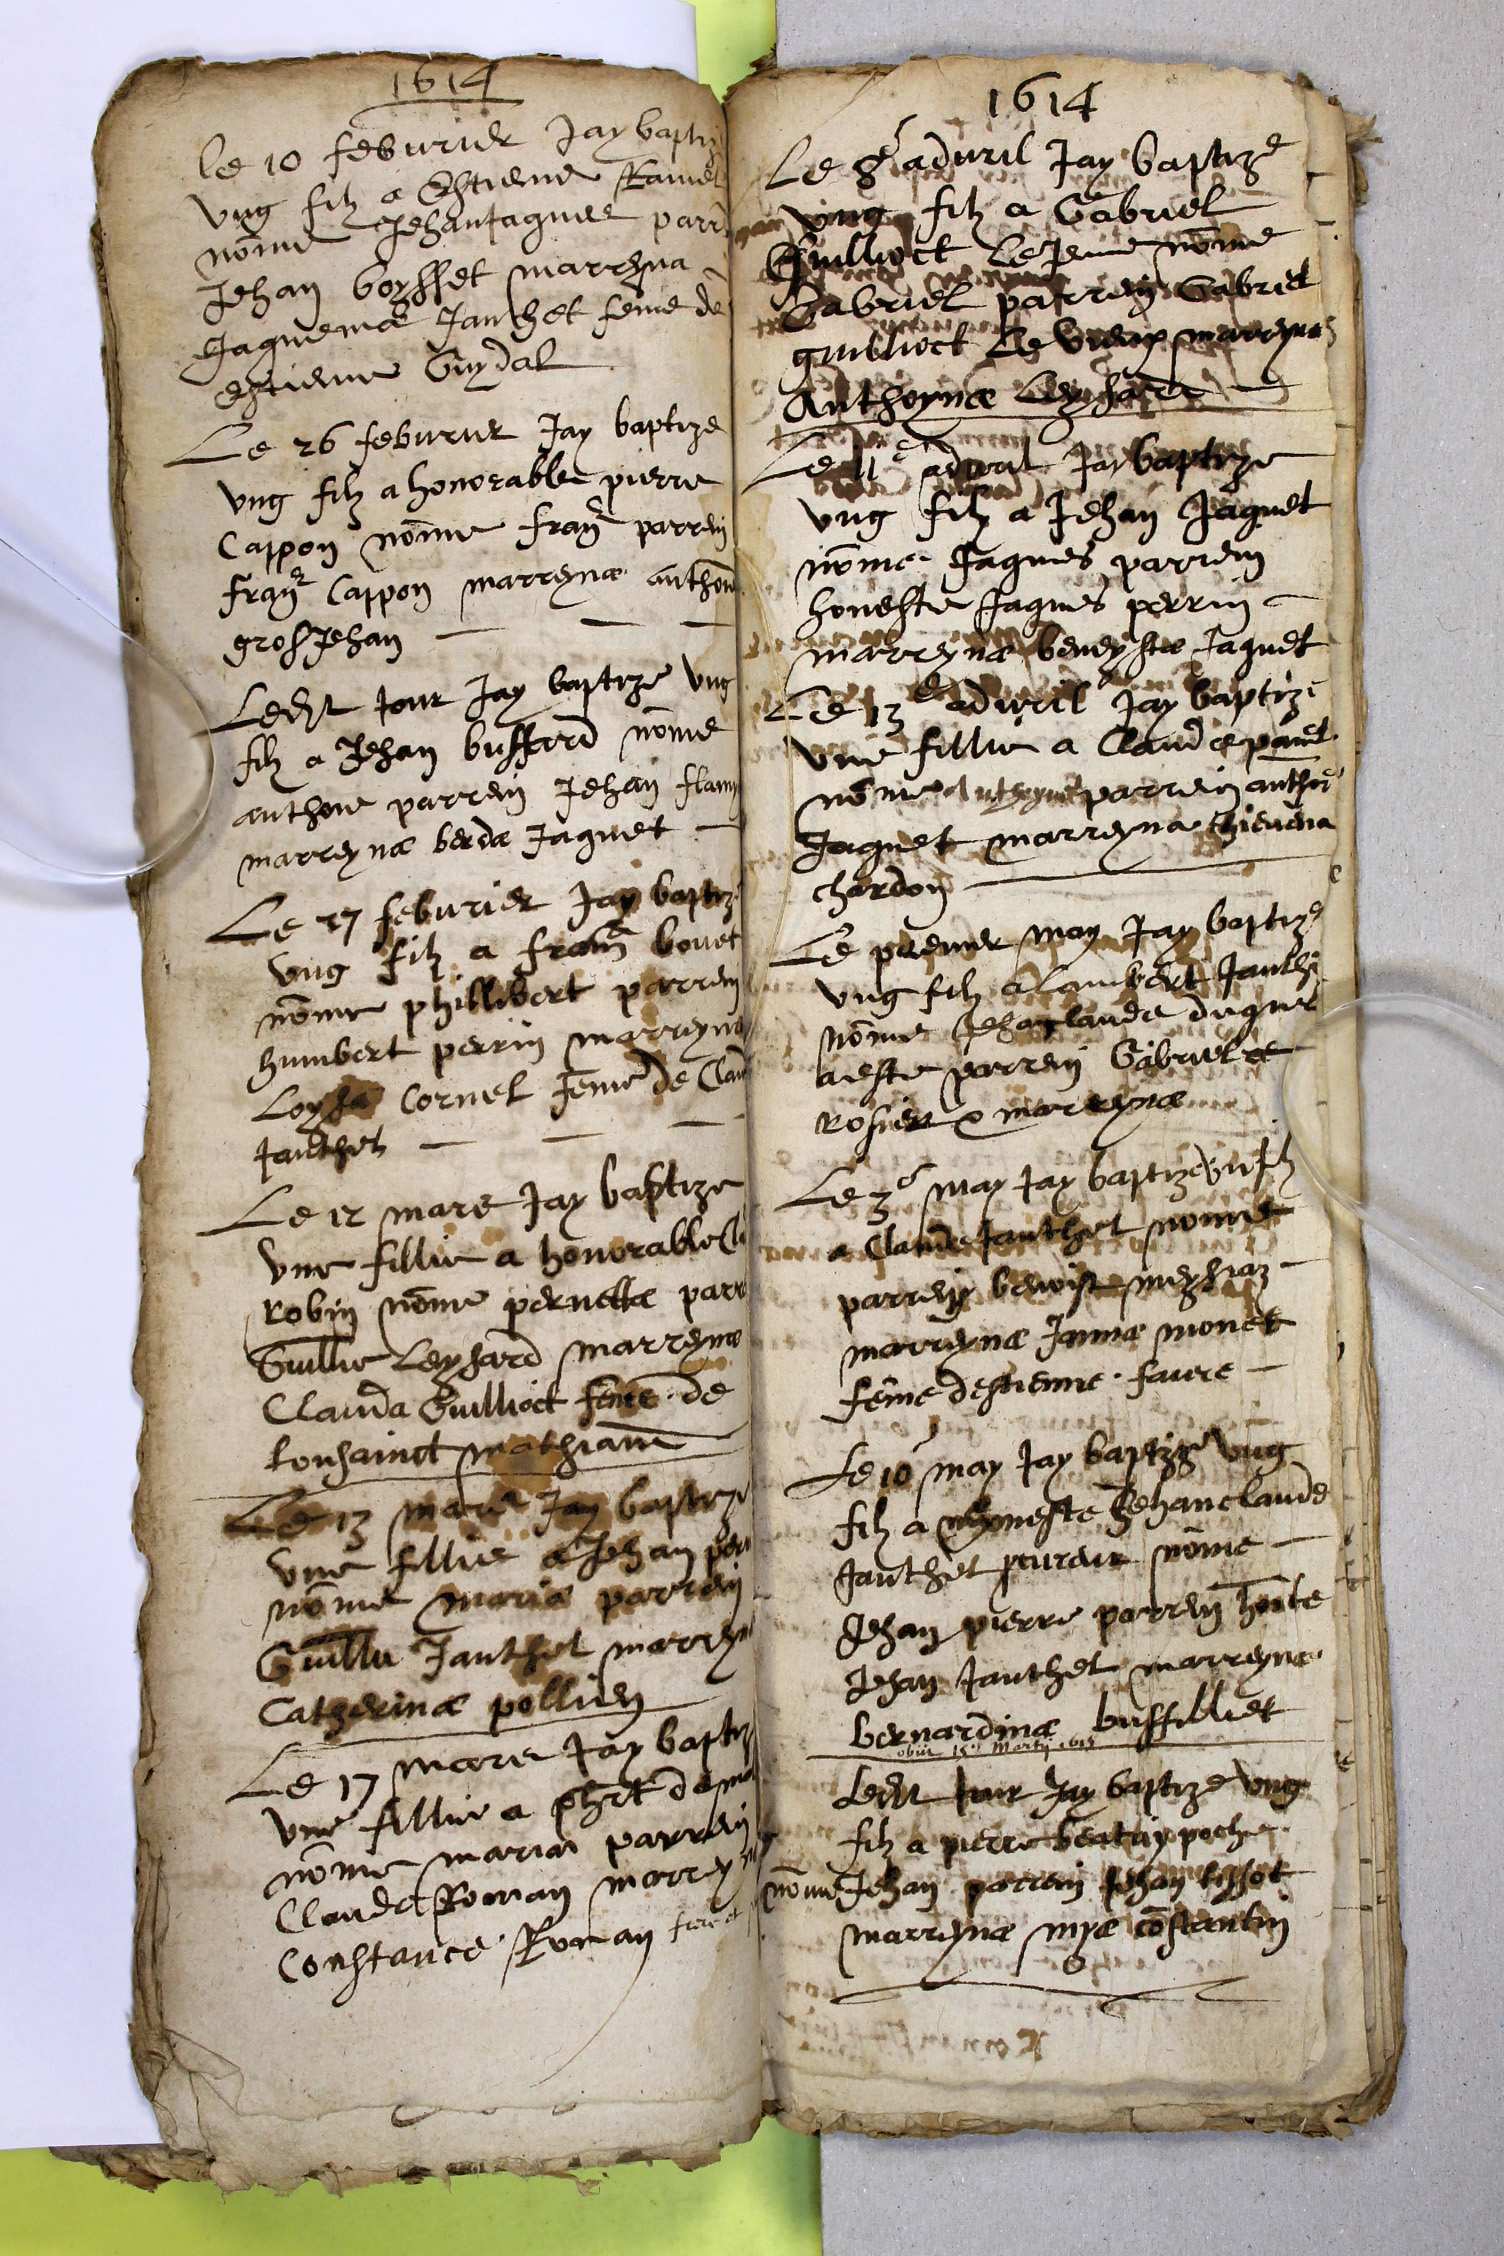 1614
le 10 feburier Jay baptiz
vng filz a Estieme Ramel
nome Jehanjaques parr
Jehan boysset marreyna
Jaquema Janthet feme de
estieme Guydal
Le 26 feburier Jay baptize
vng filz a honorable pierre
Cappon nome franç parrein
franç Cappon marreyna anthon
grosJehan
Ledit jour Jay baptize vng
filz a Jehan buffard nome
anthone parrein Jehan flam
marreyna berda Jaquet
Le 27 feburier Jay baptiz
vng filz a franç bouet
nome phillibert parrein
humbert perrin marreyna
Loysa Cornel feme de Clau
Janthet
Le 12 mars Jay baptize
vne fillie a honorable Cl
Robin nome pernetta parr
Guillie Leysard marreyna
Clauda Guilliot feme de
tonsainct mathiaue
Le 13 mars Jay baptize
vne fillie a Jehan per
nome maria parrein
Guillie Janthet marreyn
Catherina pollien
Le 17 mars Jay baptiz
vne fillie a phrt de ma
nome maria parrein
Claude Roman marreyn
Constance Roman
1614
Le 8e aduril Jay baptize
vng filz a Gabriel
Guilliot le Jeune nome
Gabriel parrein Gabriel
guilliot le vieux marreyna
Anthoyna Leysard
Le 11e aduril Jay baptize
vng filz a Jehan Jaquet
nome Jaques parrein
honeste Jaques perrin
marreyna beneysta Jaquet
Le 13e aduril Jay baptize
vne fillie a Claude panet
nome anthoyna parrein anthoe
Jaquet marreyna thieuena
chardon
Le premier may Jay baptize
vng filz a Lambert Janthe
nome Jehanclaude duquel
a este parrein Gabriel
rosier & marreyna
Le 3e may Jay baptize vn filz
a Claude Janthet nome
parrein benoist meysiaz
marreyna Janna monet
feme destienne faure
Le 10 may Jay baptize vng
filz a honeste Jehanclaude
Janthet nome
Jehan pierre parrein honte
Jehan Janthet marreyna
bernardina buffilliet
obiit 15 Martij 1615
Ledit Jour Jay baptize vng
filz a pierre beatrix poche
nome Jehan parrein Jehan tissot
marreyna mya costantin